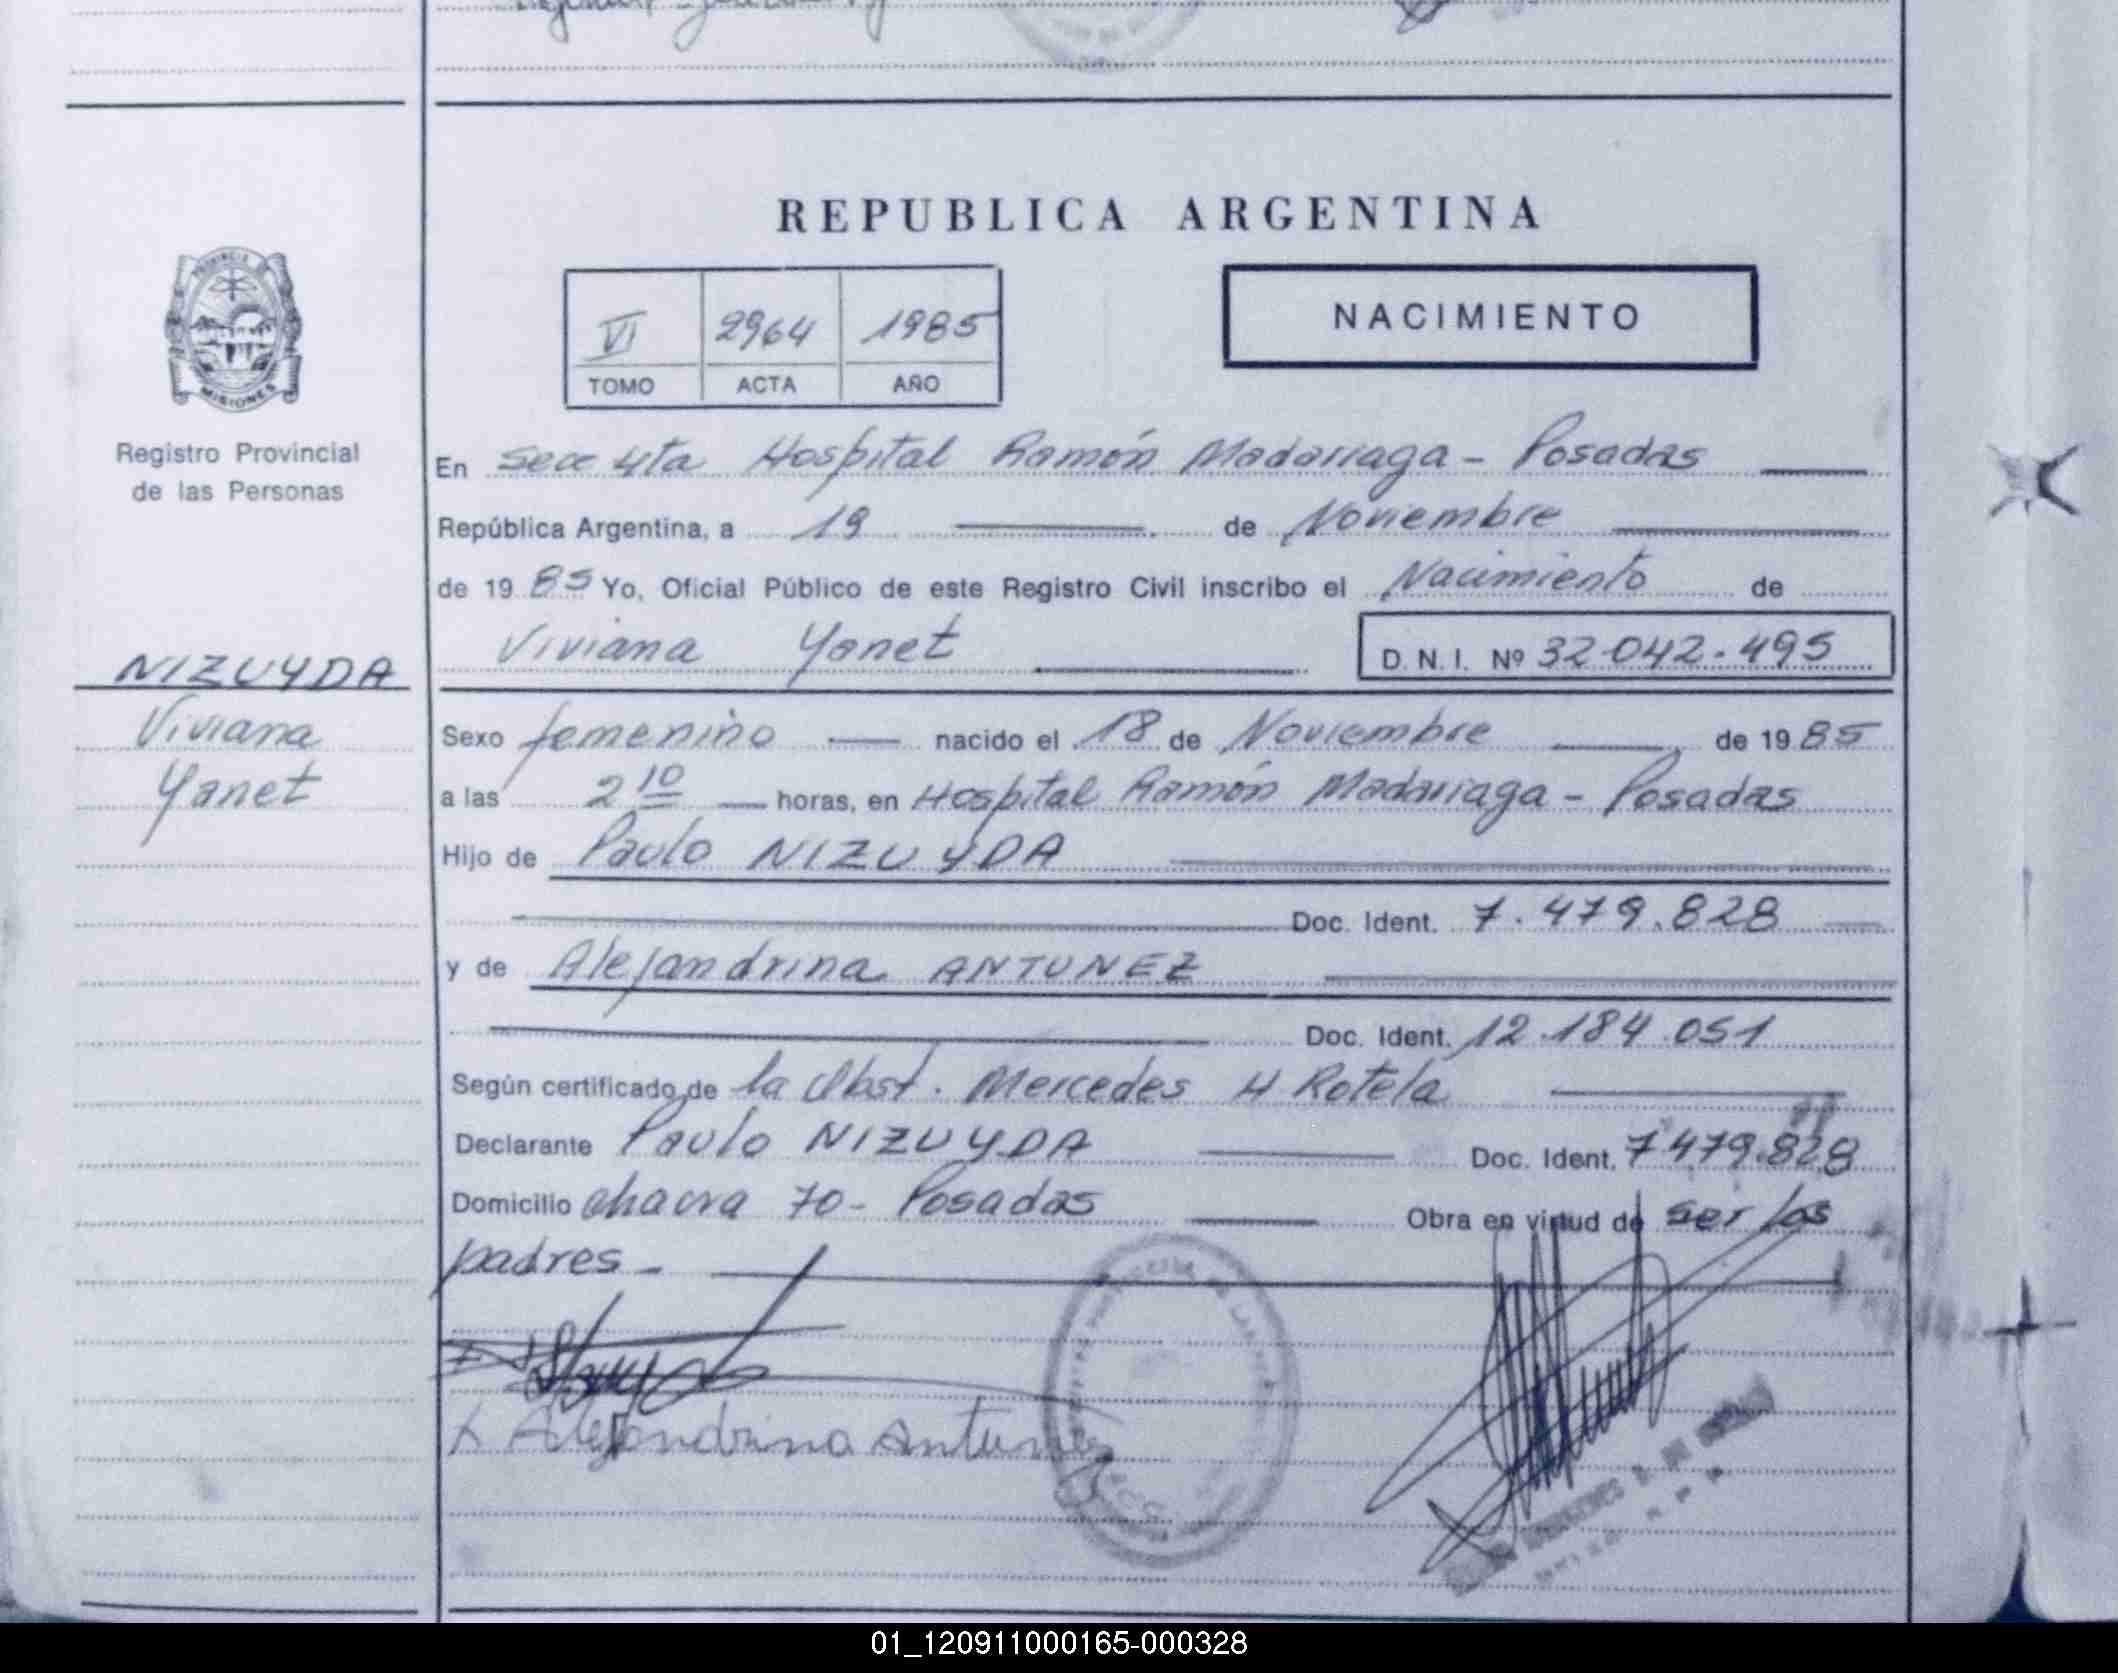 REPUBLICA ARGENTINA
VI 2964 1985
TOMO ACTA AÑO
NACIMIENTO
PROVINCIA DE
MISIONES
Registro Provincial
de las Personas
En Secc 4ta Hospital Ramón Madariaga - Posadas
República Argentina, a 19 de Noviembre
de 19 85 Yo, Oficial Público de este Registro Civil inscribo el Nacimiento de
Viviana Yanet D. N. I. Nº 32.042.495
NIZUYDA
Viviana
Yanet
Sexo femenino nacido el 18 de Noviembre de 19 85
a las 2 10 horas, en Hospital Ramón Madariaga - Posadas
Hijo de Paulo NIZUYDA
Doc. Ident. 7.479.828
y de Alejandrina ANTUNEZ
Doc. Ident. 12.184.051
Según certificado de la Obst. Mercedes H Rotela
Declarante Paulo NIZUYDA Doc. Ident. 7479.828
Domicilio chacra 70 - Posadas Obra en virtud de ser los
padres -
x Alejandrina Antunez
01_120911000165-000328